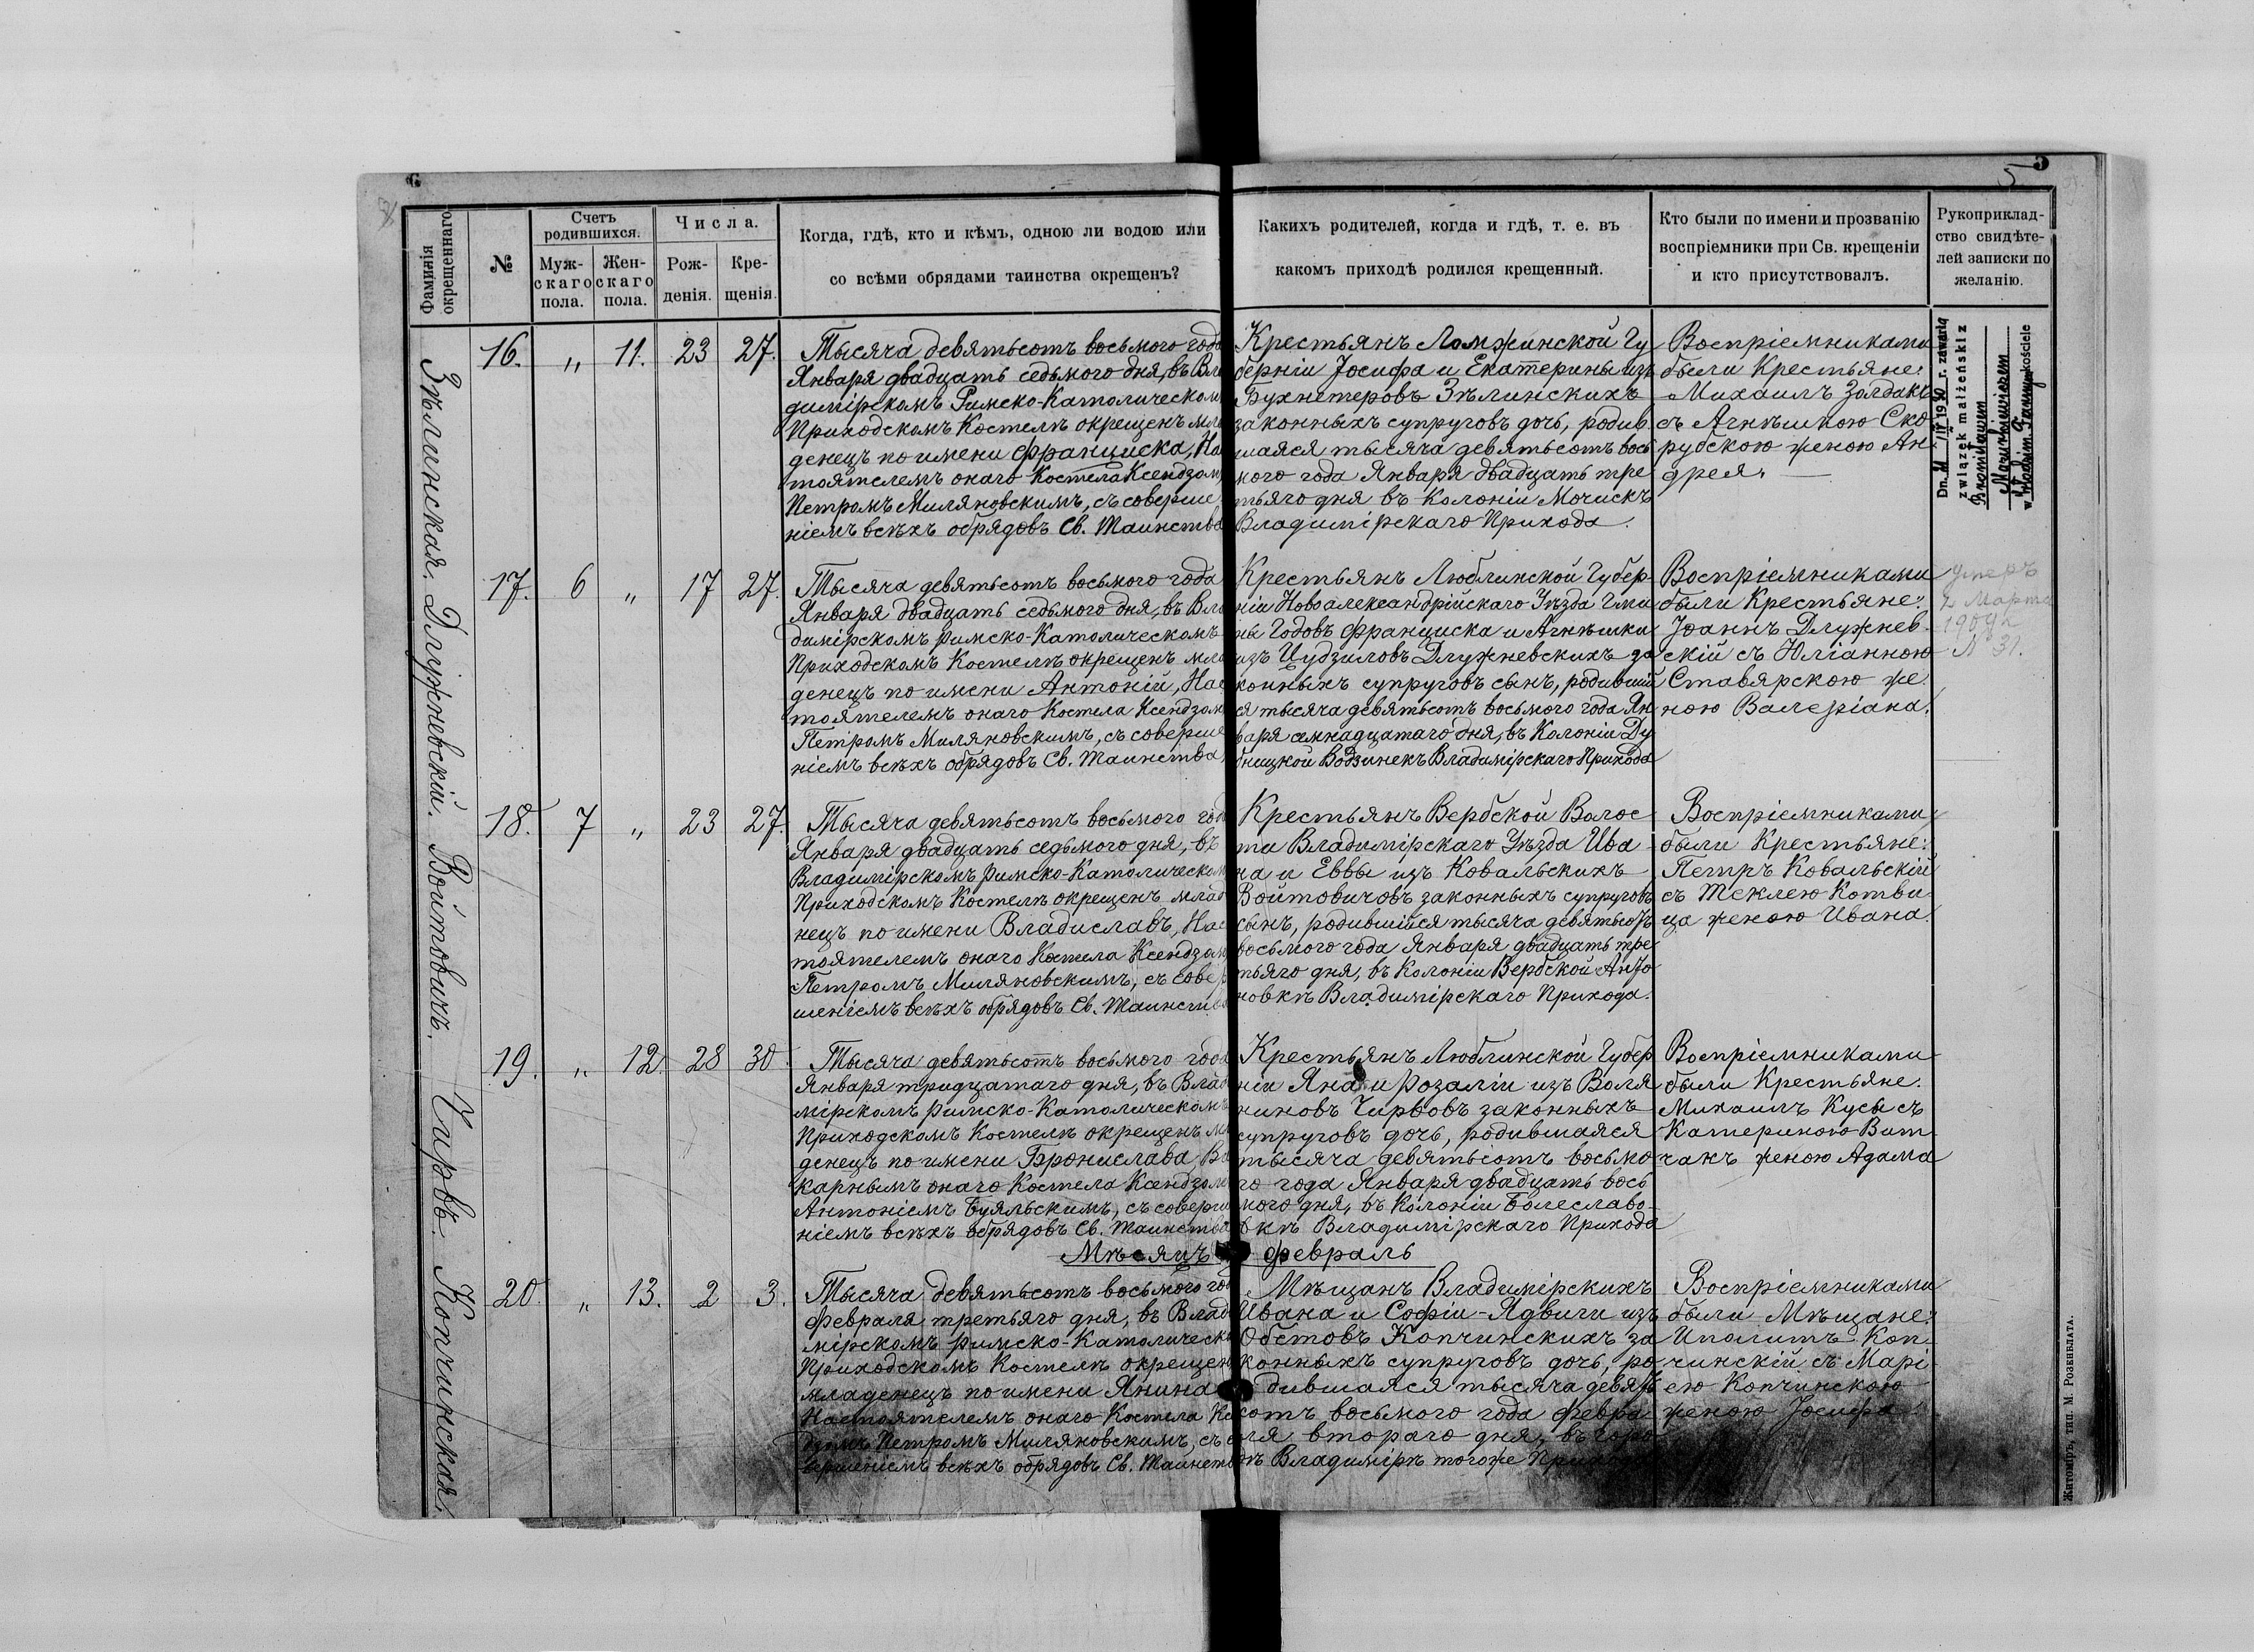 5
Фамилія окрещеннаго
№
Счетъ родившихся.
Мужскаго пола.
Женскаго пола.
Числа.
Рожденія.
Крещенія.
Когда, гдѣ, кто и кѣмъ, одною ли водою или
со всѣми обрядами таинства окрещенъ?
Какихъ родителей, когда и гдѣ, т. е. въ
какомъ приходѣ родился крещенный.
Кто были по имени и прозванію
воспріемники при Св. крещеніи
и кто присутствовалъ.
Рукоприклад-
ство свидѣте-
лей записки по
желанію.
Зѣлинская.
16. „ 11. 23 27.
Тысяча девятьсотъ восьмого года
Января двадцать седьмого дня, въ Вла
димірскомъ Римско-Католическом
Приходскомъ Костелѣ окрещенъ мла
денецъ по имени Франциска, На
тоятелемъ онаго Костела Ксендзом
Петромъ Миляновскимъ, съ соверше
ніемъ всѣхъ обрядовъ Св. Таинства
Крестьянъ Ломжинской Гу
берніи Іосифа и Екатерины изъ
Бухнетеровъ Зѣлинскихъ
законныхъ супруговъ дочь, родив
шаяся тысяча девятьсотъ вось
мого года Января двадцать тре
тьяго дня въ Колоніи Мочискъ
Владимірскаго Прихода.
Воспріемниками
были Крестьяне:
Михаилъ Золдакъ
съ Агнѣшкою Ско
рубскою женою Ан
дрея.
Dn. 1930 r. zawarła
związek małżeński z
Bronisławem
w kościele
Длужневскій.
17. 6 „ 17 27.
Тысяча девятьсотъ восьмого года
Января двадцать седьмого дня, въ Вла
димірскомъ Римско-Католическомъ
Приходскомъ Костелѣ окрещенъ мла
денецъ по имени Антоній, Нас
тоятелемъ онаго Костела Ксендзом
Петромъ Миляновскимъ, съ соверше
ніемъ всѣхъ обрядовъ Св. Таинства,
Крестьянъ Люблинской Губер-
ніи Новоалександрійскаго Уѣзда Гми
ны Годовъ Франциска и Агнѣшки
изъ Цудзиловъ Длужневскихъ за
конныхъ супруговъ сынъ, родивший
ся тысяча девятьсотъ восьмого года Ян
варя семнадцатаго дня, въ Колоніи Ду
бницкой Водзинекъ Владимірскаго Прихода
Воспріемниками
были Крестьяне:
Іоаннъ Длужнев-
скій съ Юліанною
Ставярскою же
ною Валеріана.
умеръ
2 Марта
1909 г.
№ 31.
Войтовичъ.
18. 7 „ 23 27.
Тысяча девятьсотъ восьмого год
Января двадцать седьмого дня, въ
Владимірскомъ Римско-Католическом
Приходскомъ Костелѣ окрещенъ млад
нецъ по имени Владиславъ, Нас
тоятелемъ онаго Костела Ксендзом
Петромъ Миляновскимъ, съ совер
шеніемъ всѣхъ обрядовъ Св. Таинства
Крестьянъ Вербской Волос
ти Владимірскаго Уѣзда Ива
на и Еввы изъ Ковальскихъ
Войтовичовъ законныхъ супруговъ
сынъ, родившійся тысяча девятьсотъ
восьмого года Января двадцать тре
тьяго дня, въ Колоніи Вербской Анто
новкѣ Владимірскаго Прихода.
Воспріемниками
были Крестьяне:
Петръ Ковальскій
съ Теклею Котви
ца женою Ивана.
Чирвъ.
19. „ 12. 28 30.
Тысяча девятьсотъ восьмого года
Января тридцатаго дня, въ Влад
мірскомъ Римско-Католическомъ
Приходскомъ Костелѣ окрещенъ мл
денецъ по имени Бронислава, Ви
карнымъ онаго Костела Ксендзом
Антоніемъ Буяльскимъ, съ соверше
ніемъ всѣхъ обрядовъ Св. Таинства
Крестьянъ Люблинской Губер
ніи Яна и Розаліи изъ Воля
ниновъ Чирвовъ законныхъ
супруговъ дочь, родившаяся
тысяча девятьсотъ восьмо
го года Января двадцать вось
мого дня, въ Колоніи Болеславо-
вкѣ Владимірскаго Прихода
Воспріемниками
были Крестьяне.
Михаилъ Кусы съ
Катериною Вит
чакъ женою Адама
Мѣсяцъ Февраль
Копчинская.
20. „ 13. 2 3.
Тысяча девятьсотъ восьмого год
Февраля третьяго дня, въ Влад
мірскомъ Римско-Католическо
Приходскомъ Костелѣ окрещен
младенецъ по имени Янина
Настоятелемъ онаго Костела Кс
дзомъ Петромъ Миляновскимъ, съ с
вершеніемъ всѣхъ обрядовъ Св. Таинств
Мѣщанъ Владимірскихъ
Ивана и Софіи-Ядвиги изъ
Обстовъ Копчинскихъ за
конныхъ супруговъ дочь, ро
дившаяся тысяча девять
сотъ восьмого года Февра
ля второго дня, въ горо
дѣ Владимірѣ тогоже Прих
Воспріемниками
были Мѣщане:
Иполитъ Коп
чинскій съ Марі
ею Копчинскою
женою Іосифа.
Житоміръ, тип. М. Розенблата.